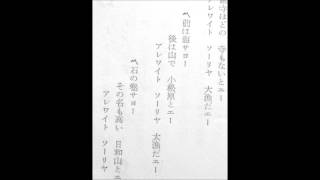 寺ほどの 寺もないとエー
アレワイト ソーリヤ 大漁だエー
〽前は海サヨー
後は山で 小松原とエー
アレワイト ソーリヤ 大漁だエー
〽石の巻サヨー
その名も高い 日和山とエ
アレワイト ソーリヤ